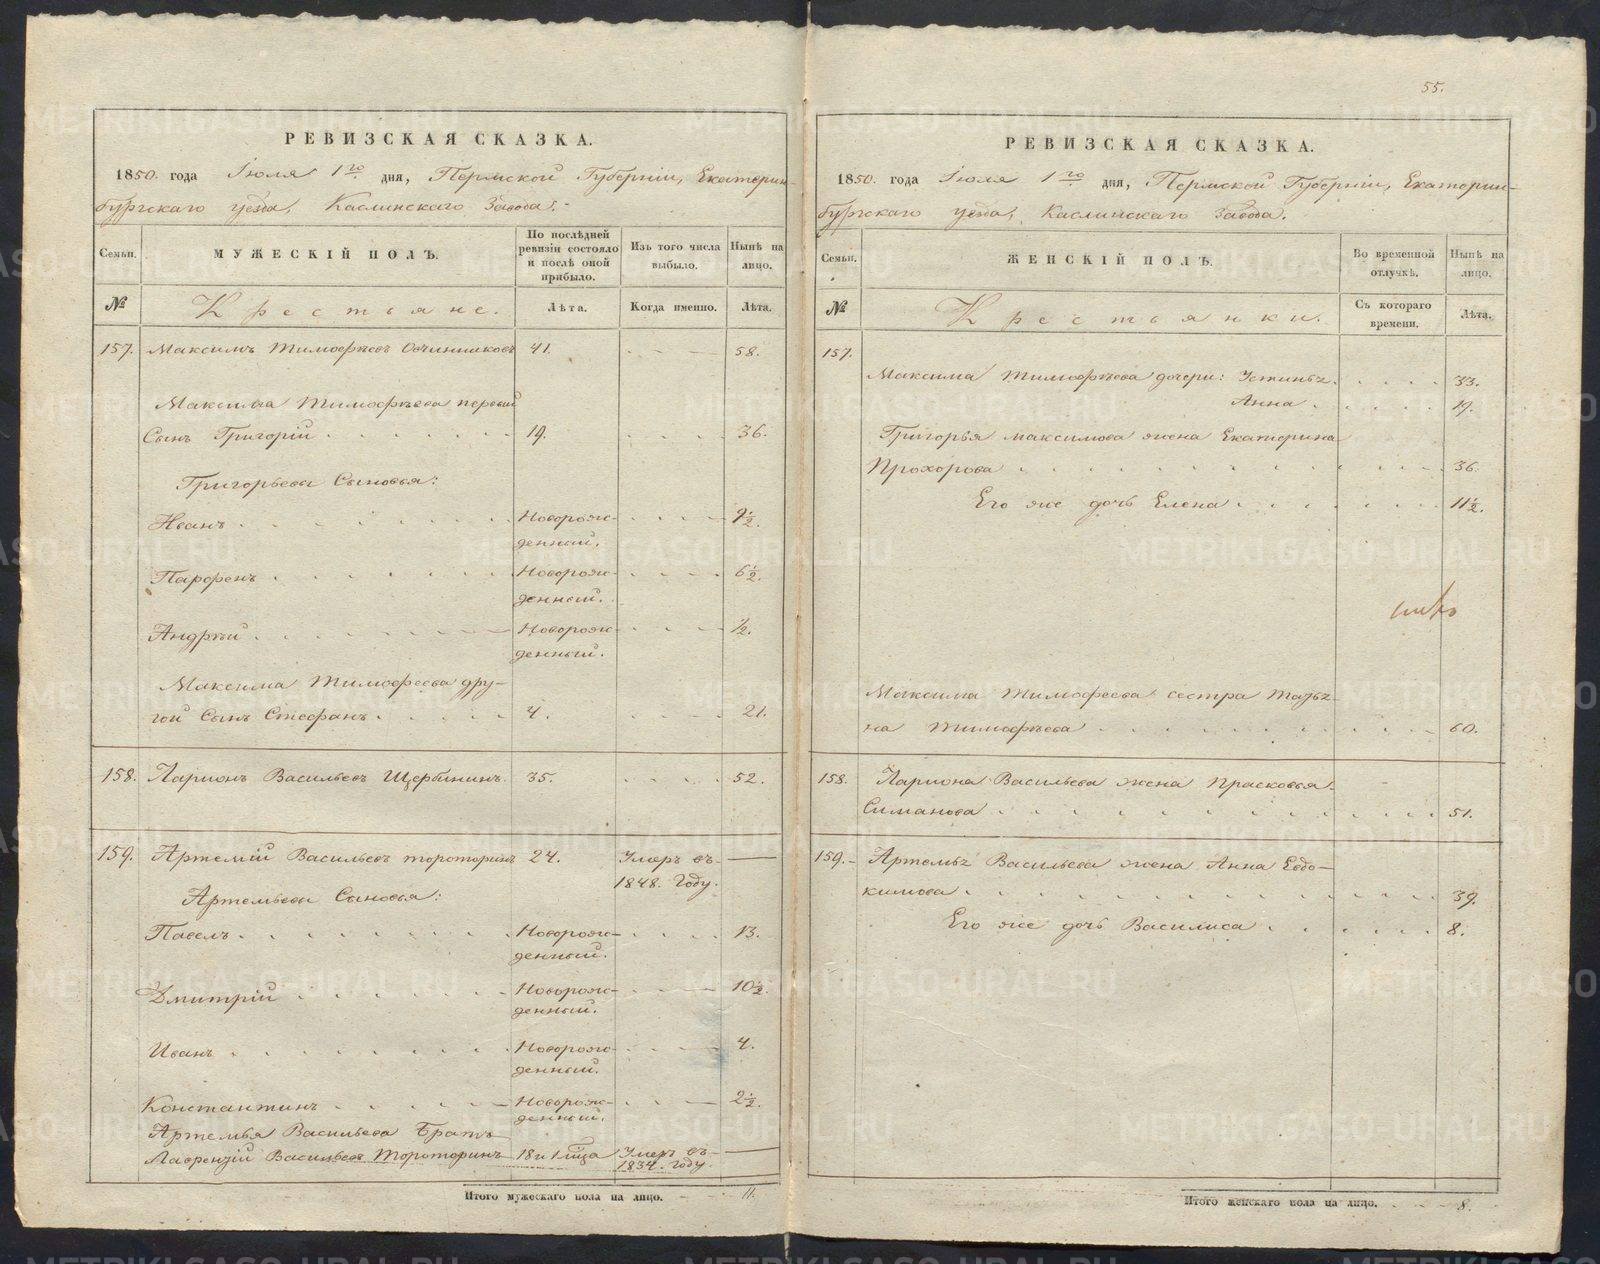 55.
РЕВИЗСКАЯ СКАЗКА.
1850. года Іюля 1го дня, Пермской Губерніи, Екатерин-
бургскаго уезда, Каслинскаго Завода.
Семьи.
МУЖЕСКІЙ ПОЛЪ.
По послѣдней ревизіи состояло и послѣ оной прибыло.
Изъ того числа выбыло.
Нынѣ на лицо.
№
Крестьяне.
Лѣта.
Когда именно.
Лѣта.
157. Максимъ Тимофѣевъ Овчинниковъ 41. 58.
Максима Тимофѣева первый
Сынъ Григорій 19. 36.
Григорьевы Сыновья:
Иванъ Новорож- 9½.
денный.
Парфенъ Новорож- 6½.
денный.
Андрѣй Новорож- ½.
денный.
Максима Тимофеева дру-
гой Сынъ Стефанъ 4. 21.
158. Ларионъ Васильевъ Щербининъ. 35. 52.
159. Артемій Васильевъ тороторинъ 24. Умеръ въ
1848. Году.
Артемьевы Сыновья:
Павелъ Новорож- 13.
денный.
Дмитрій Новорож- 10½.
денный.
Иванъ Новорож- 4.
денный.
Константинъ Новорож- 2½.
денный.
Артемья Васильева Братъ
Лаврентій Васильевъ Тороторинъ 18 и 1 мца Умеръ въ
1834. году.
Итого мужескаго пола на лицо. 11.
РЕВИЗСКАЯ СКАЗКА.
1850. года Іюля 1го дня, Пермской Губерніи, Екатерин-
бургскаго уезда, Каслинскаго Завода.
Семьи.
ЖЕНСКІЙ ПОЛЪ.
Во временной отлучкѣ.
Нынѣ на лицо.
№
Крестьянки.
Съ котораго времени.
Лѣта.
157.
Максима Тимофѣева дочери: Устинья. 33.
Анна 19.
Григорья Максимова жена Екатерина
Прохорова 36.
Его же дочь Елена 11½.
Максима Тимофеева сестра Татья-
на Тимофѣева 60.
158. Лариона Васильева жена Прасковья
Симанова 51.
159. Артемья Васильева жена Анна Евдо-
кимова 39.
Его же дочь Василиса 8.
Итого женскаго пола на лицо. 8.
METRIKI.GASO-URAL.RU